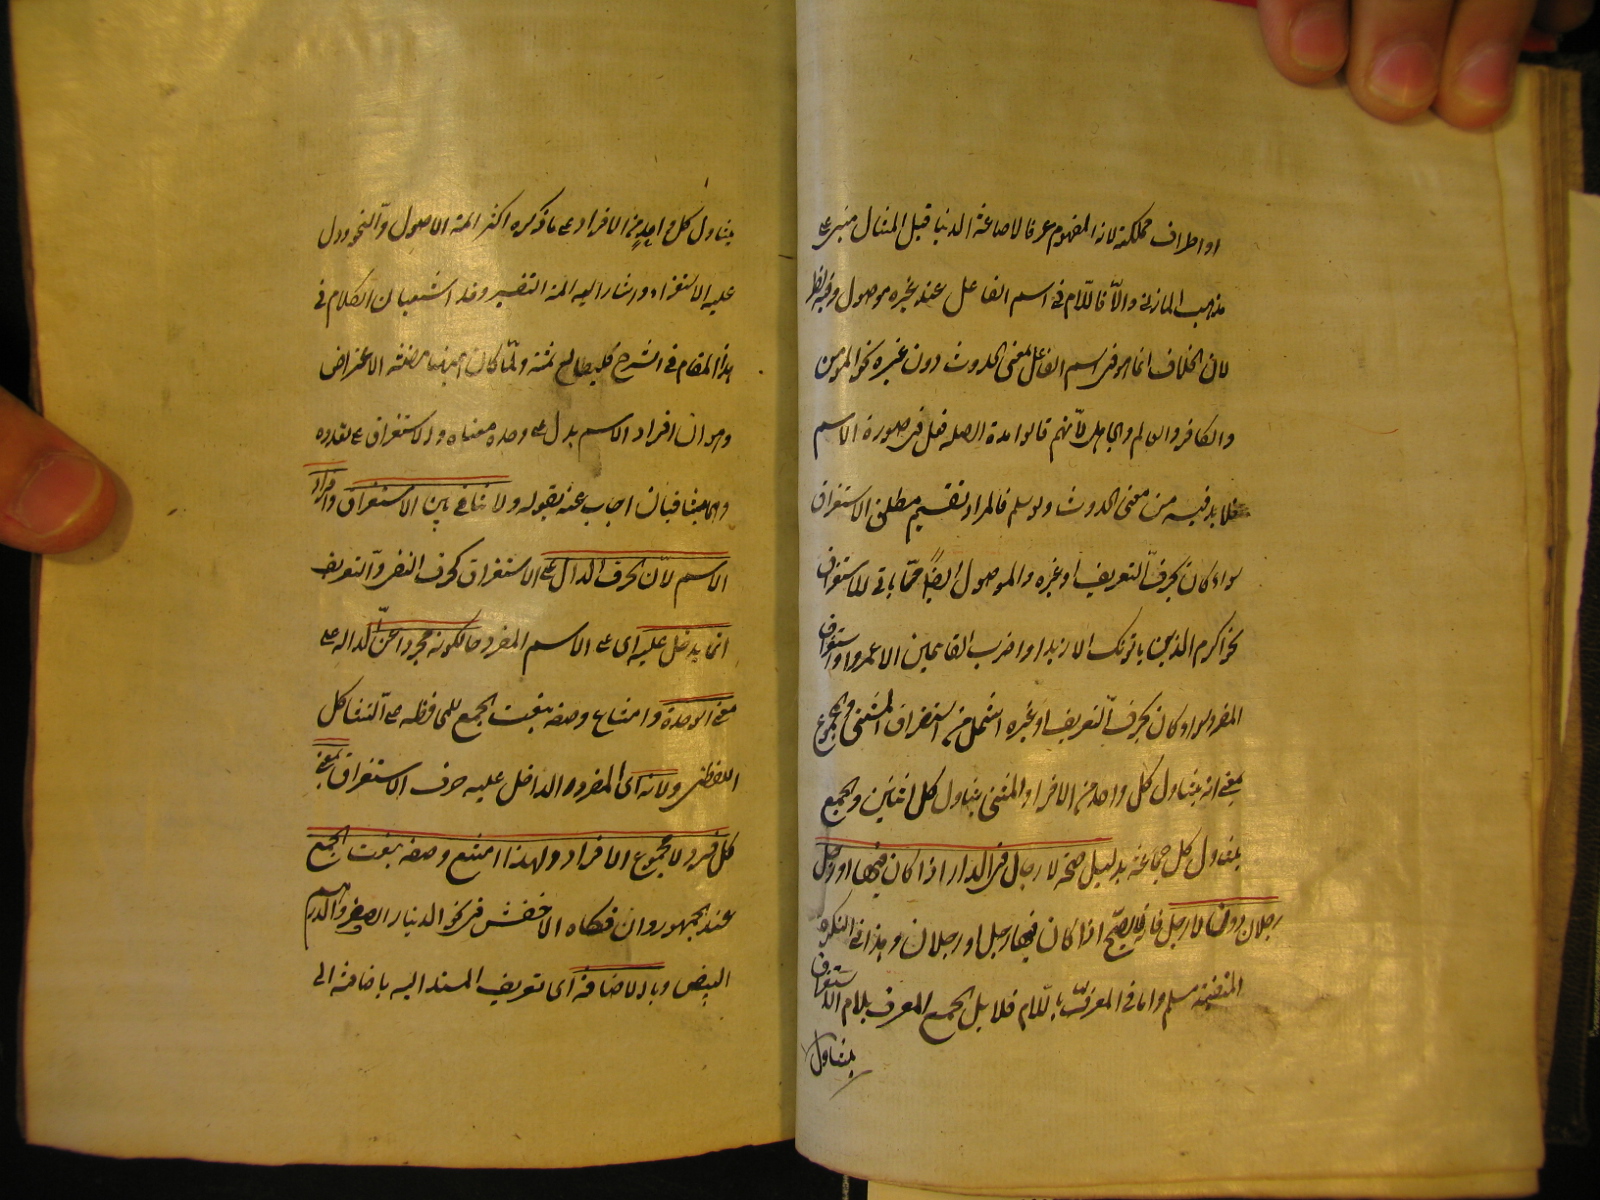 او اطراف مملكته لانه المفهوم عرفا لا صاغة الدنيا قيل المثال مبنى على
مذهب المازنى والا فاللام فى اسم الفاعل عند غيره موصول وفيه نظر
لان الخلاف انما هو فى اسم الفاعل بمعنى الحدوث دون غيره نحو المؤمن
والكافر والعالم والجاهل لانهم قالوا هذه الصلة فعل فى صورة الاسم
فلا بد فيه من معنى الحدوث ولو سلم فالمراد تقسيم مطلق الاستغراق
سواء كان بحرف التعريف او غيره والموصول ايضا مما ياتى للاستغراق
نحو اكرم الذين ياتونك الا زيدا واضرب القائمين الا عمروا واستغراق
المفرد سواء كان بحرف التعريف او غيره اشمل من استغراق المثنى والمجموع
بمعنى انه يتناول كل واحد من الافراد والمثنى يتناول كل اثنين والجمع
يتناول كل جماعة بدليل صحة لا رجال فى الدار اذا كان فيها رجل او
رجلان دون لا رجل فانه لا يصح اذا كان فيها رجل او رجلان وهذا فى النكرة
المنفية مسلم واما فى المعرف باللام فلا بل الجمع المعرف بلام الاستغراق
يتناول
يتناول كل واحد من الافراد على ما ذكره اكثر ائمة الاصول والنحو ودل
عليه الاستقراء واشار اليه ائمة التفسير وقد اشبعنا الكلام فى
هذا المقام فى الشرح فليطالع ثمة ولما كان ههنا مظنة الاعتراض
وهو ان افراد الاسم يدل على وحدة معناه والاستغراق على تعدده
وهما متنافيان اجاب عنه بقوله ولا تنافى بين الاستغراق وافراد
الاسم لان الحرف الدال على الاستغراق كحرف النفى والتعريف
انما يدخل عليه اى على الاسم المفرد حال كونه مجردا عن الدلالة على
معنى الوحدة وامتناع وصفه بنعت الجمع للمحافظة على التشاكل
اللفظى ولانه اى المفرد الداخل عليه حرف الاستغراق بمعنى
كل فرد لا مجموع الافراد ولهذا امتنع وصفه بنعت الجمع
عند الجمهور وان حكاه الاخفش فى نحو الدينار الصفر والدرهم
البيض وبالاضافة اى تعريف المسند اليه باضافته الى